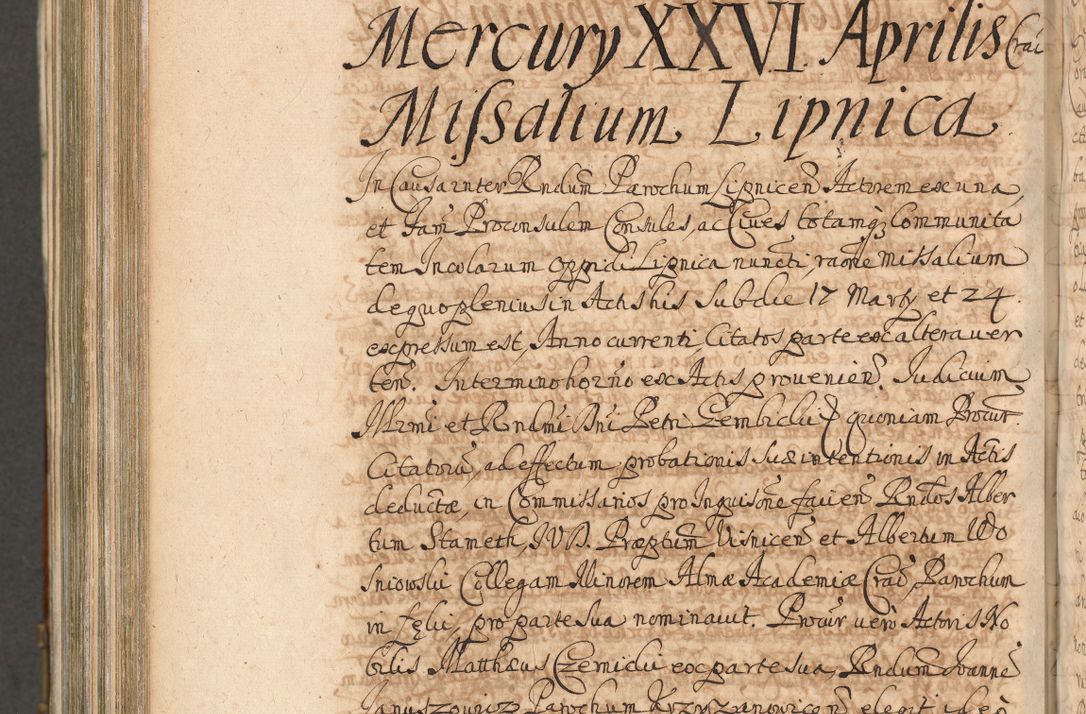 Mercury XXVI Aprilis Crac
Missalium Lipnica
In Causa inter Rndum Parochum Lipnicen Actorem ex una
et Fam Proconsulem Consules, ac Ciues totamq Communita
tem Incolarum oppidi Lipnica nuncti, raone missalium
de quo plenius in Actis his sub die 17 Marty et 24.
expressum est, Anno currenti Citatos parte ex altera uer
ten. In termino horno ex Actis prouenien. Iudicium
Illrmi et Rndmi Dni Petri Gembicki quoniam Procur
Citatoru, ad effectum probationis suæ intentionis in Actis
deductæ, in Commissarios pro Inquisone facien Rndos Alber
tum Stameth, IVD. Præptum Visnicen et Albertum Wo
sniowski Collegam Minorem Almæ Academiæ Crac Parochum
in Łęki, pro parte sua nominauit. Procur uero Actoris No
bilis Matthæus Czernicki ex parte sua, Rndum Joanne
Januszowicz Parochum Krzyzanowicen elegit ideo